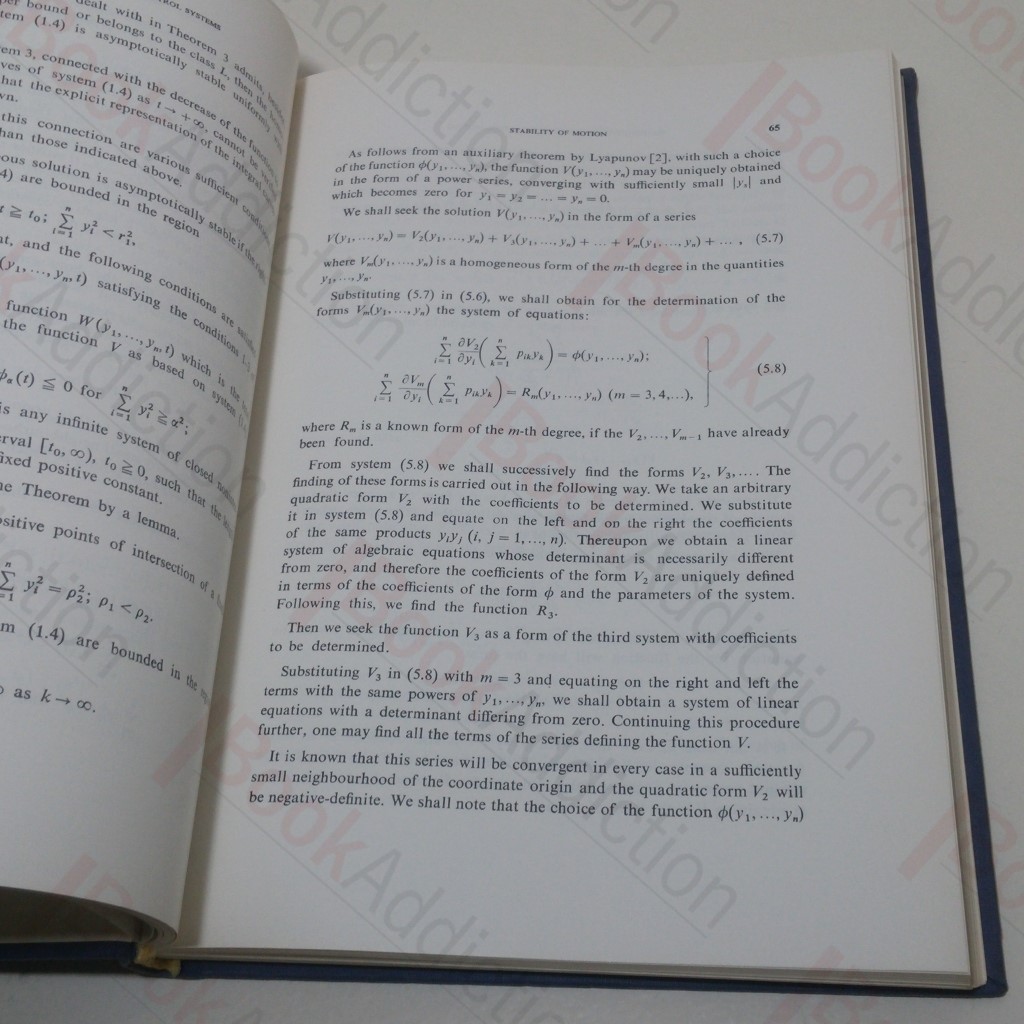 ROL SYSTEMS
dealt with in Theorem 3 admits,
per bound or belongs to the class L, then the
tem (1.4) is asymptotically stable uniformly
em 3, connected with the decrease of the function
ves of system (1.4) as t → +∞, cannot be
hat the explicit representation of the integral
wn.
this connection are various sufficient conditions
han those indicated above.
ous solution is asymptotically stable if the
4) are bounded in the region
t ≧ t₀; ∑ⁿᵢ₌₁ yᵢ² < r₁²,
nt, and the following conditions are
(y₁, ..., yₙ, t) satisfying the conditions
function W(y₁, ..., yₙ, t) which is the
the function V as based on system
ϕα(t) ≦ 0 for ∑ⁿᵢ₌₁ yᵢ² ≧ α²;
is any infinite system of closed
erval [t₀, ∞), t₀ ≧ 0, such that the
fixed positive constant.
he Theorem by a lemma.
ositive points of intersection of a
∑ⁿᵢ₌₁ yᵢ² = ρ₂²; ρ₁ < ρ₂.
m (1.4) are bounded in the
as k → ∞.
STABILITY OF MOTION 65
As follows from an auxiliary theorem by Lyapunov [2], with such a choice
of the function ϕ(y₁, ..., yₙ), the function V(y₁, ..., yₙ) may be uniquely obtained
in the form of a power series, converging with sufficiently small |yₛ| and
which becomes zero for y₁ = y₂ = ... = yₙ = 0.
We shall seek the solution V(y₁, ..., yₙ) in the form of a series
V(y₁, ..., yₙ) = V₂(y₁, ..., yₙ) + V₃(y₁, ..., yₙ) + ... + Vₘ(y₁, ..., yₙ) + ... , (5.7)
where Vₘ(y₁, ..., yₙ) is a homogeneous form of the m-th degree in the quantities
y₁, ..., yₙ.
Substituting (5.7) in (5.6), we shall obtain for the determination of the
forms Vₘ(y₁, ..., yₙ) the system of equations:
∑ⁿᵢ₌₁ ∂V₂/∂yᵢ ( ∑ⁿₖ₌₁ pᵢₖyₖ ) = ϕ(y₁, ..., yₙ);
∑ⁿᵢ₌₁ ∂Vₘ/∂yᵢ ( ∑ⁿₖ₌₁ pᵢₖyₖ ) = Rₘ(y₁, ..., yₙ) (m = 3, 4, ...), (5.8)
where Rₘ is a known form of the m-th degree, if the V₂, ..., Vₘ₋₁ have already
been found.
From system (5.8) we shall successively find the forms V₂, V₃, .... The
finding of these forms is carried out in the following way. We take an arbitrary
quadratic form V₂ with the coefficients to be determined. We substitute
it in system (5.8) and equate on the left and on the right the coefficients
of the same products yᵢyⱼ (i, j = 1, ..., n). Thereupon we obtain a linear
system of algebraic equations whose determinant is necessarily different
from zero, and therefore the coefficients of the form V₂ are uniquely defined
in terms of the coefficients of the form ϕ and the parameters of the system.
Following this, we find the function R₃.
Then we seek the function V₃ as a form of the third system with coefficients
to be determined.
Substituting V₃ in (5.8) with m = 3 and equating on the right and left the
terms with the same powers of y₁, ..., yₙ, we shall obtain a system of linear
equations with a determinant differing from zero. Continuing this procedure
further, one may find all the terms of the series defining the function V.
It is known that this series will be convergent in every case in a sufficiently
small neighbourhood of the coordinate origin and the quadratic form V₂ will
be negative-definite. We shall note that the choice of the function ϕ(y₁, ..., yₙ)
BookAddiction